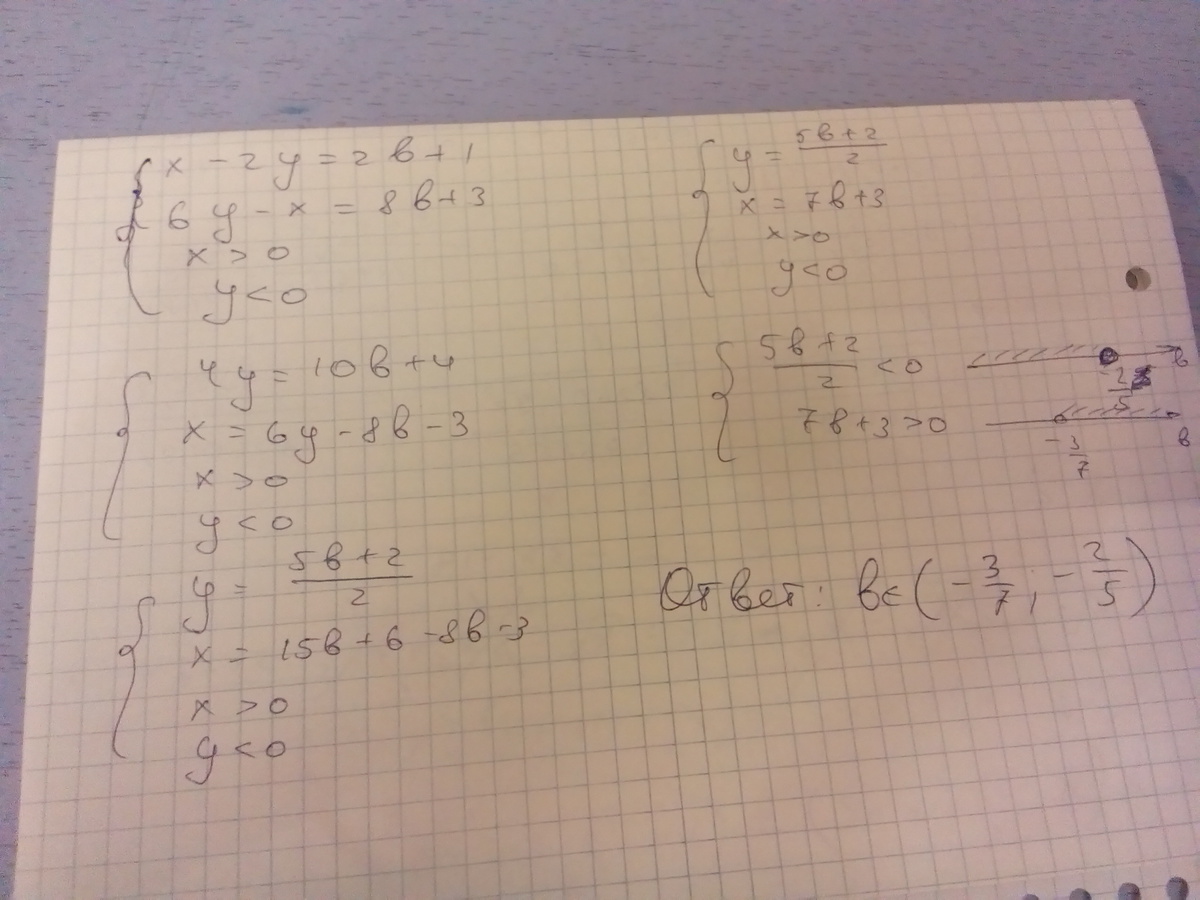 x - 2y = 2b + 1
6y - x = 8b + 3
x > 0
y < 0
4y = 10b + 4
x = 6y - 8b - 3
x > 0
y < 0
y = (5b + 2)/2
x = 15b + 6 - 8b - 3
x > 0
y < 0
y = (5b + 2)/2
x = 7b + 3
x > 0
y < 0
(5b + 2)/2 < 0
-2/5 b
7b + 3 > 0
-3/7 b
Ответ: b ∈ (-3/7; -2/5)